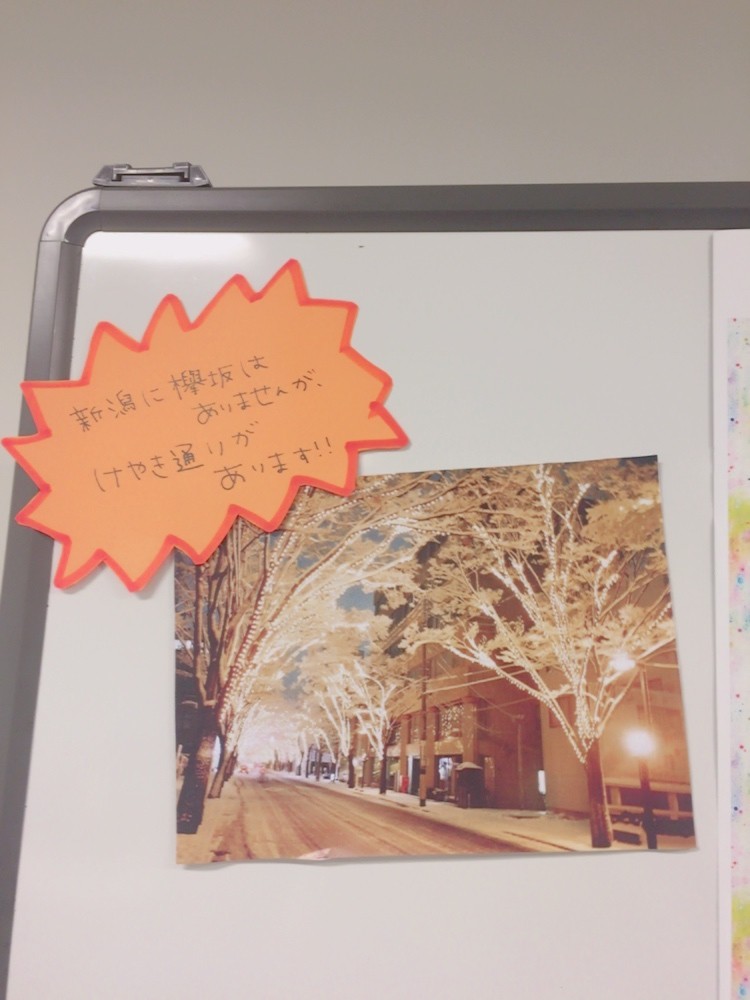 新潟に欅坂は
ありませんが、
けやき通りが
あります!!